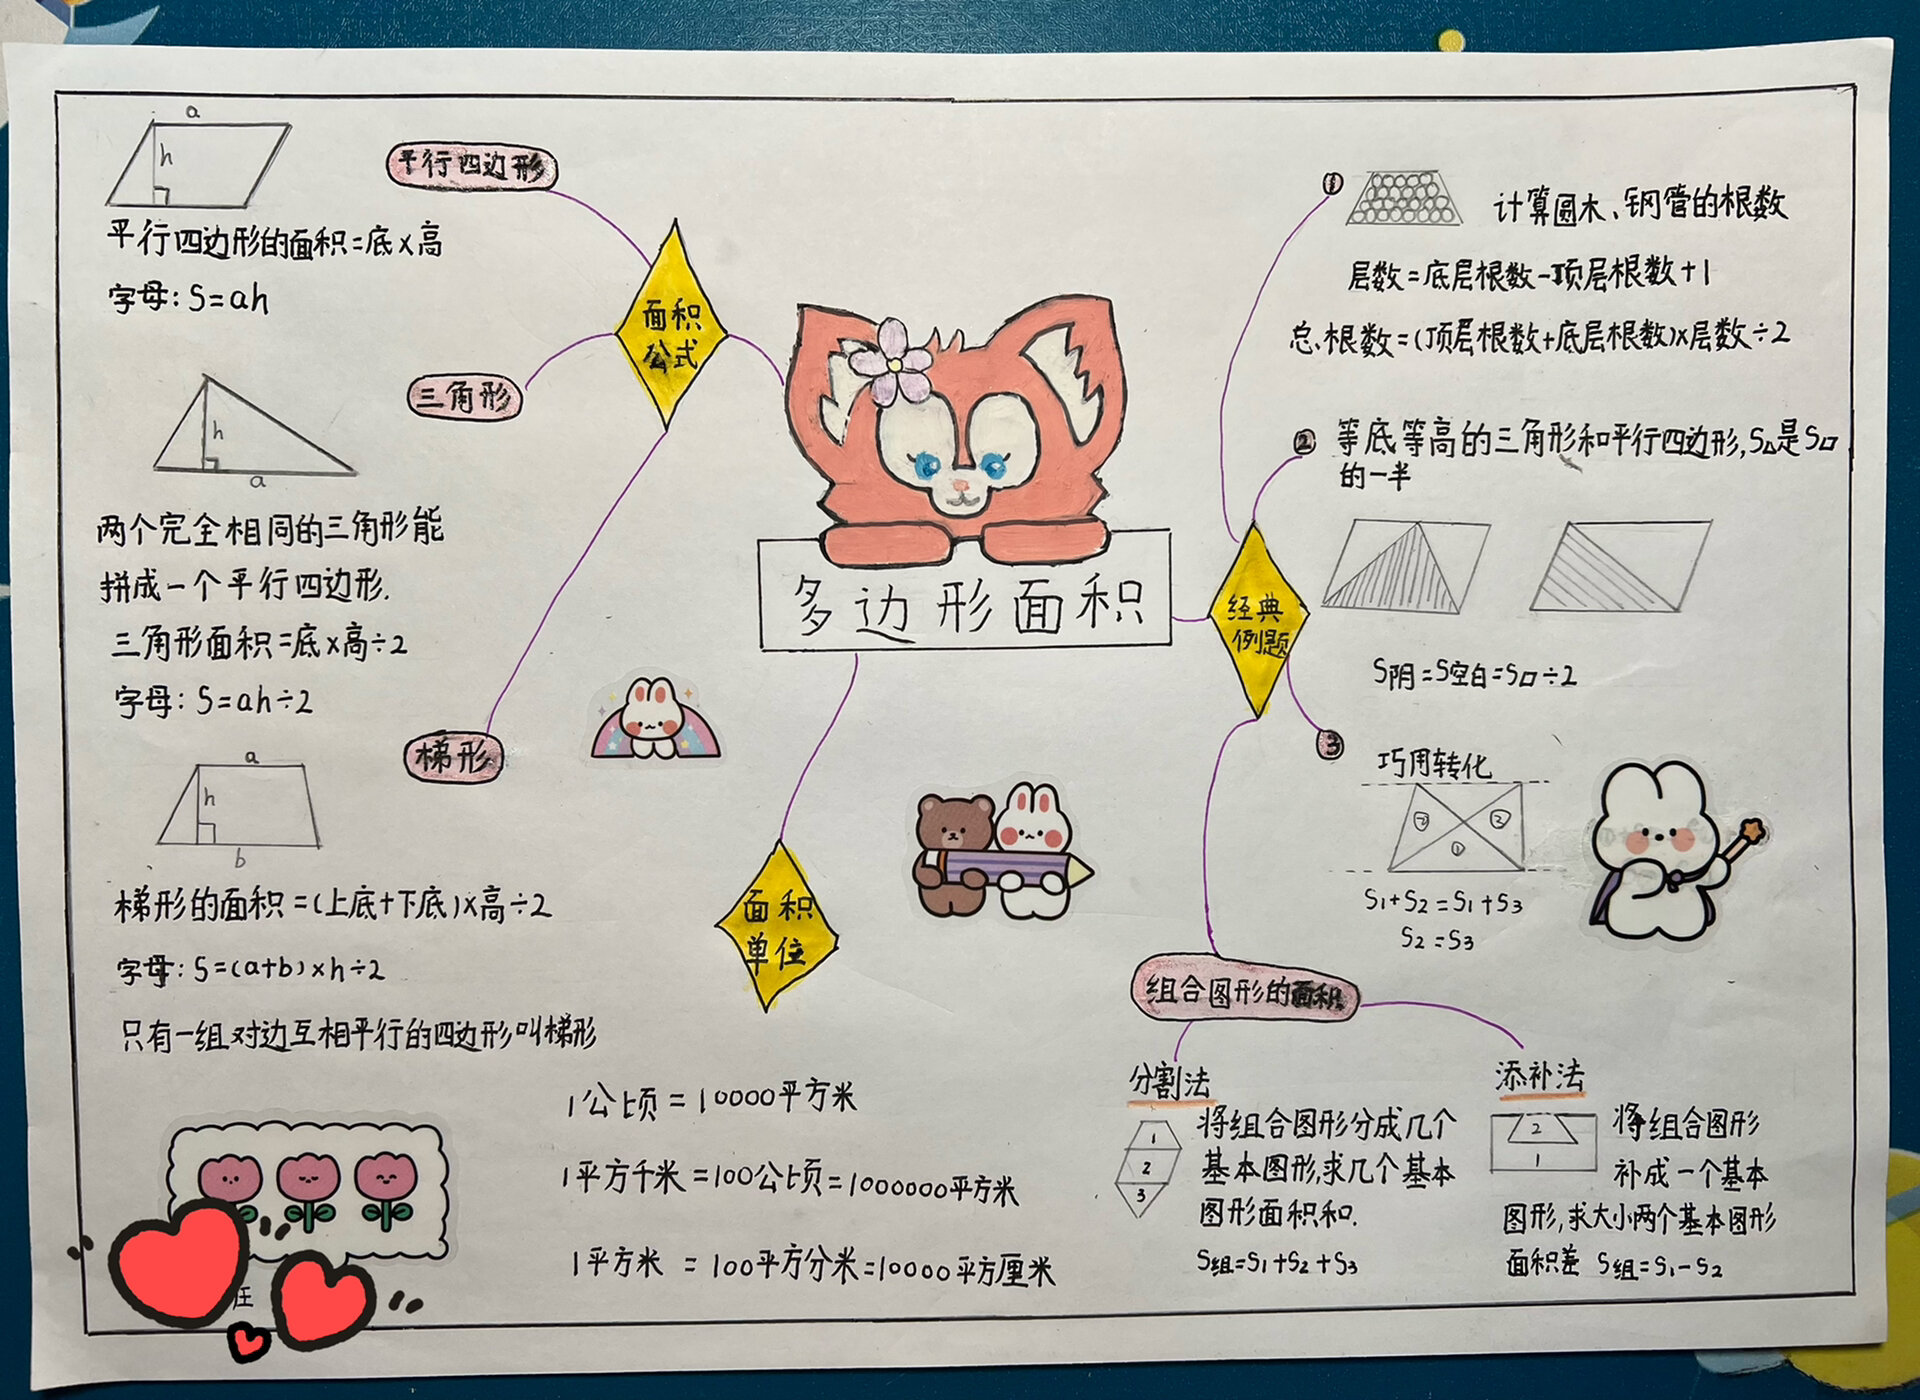 多边形面积
面积
公式
平行四边形
a
h
平行四边形的面积=底×高
字母:S=ah
三角形
h
a
两个完全相同的三角形能
拼成一个平行四边形.
三角形面积=底×高÷2
字母:S=ah÷2
梯形
a
h
b
梯形的面积=(上底+下底)×高÷2
字母:S=(a+b)×h÷2
只有一组对边互相平行的四边形叫梯形
面积
单位
1公顷=10000平方米
1平方千米=100公顷=1000000平方米
1平方米=100平方分米=10000平方厘米
经典
例题
① 计算圆木、钢管的根数
层数=底层根数-顶层根数+1
总根数=(顶层根数+底层根数)×层数÷2
② 等底等高的三角形和平行四边形,S△是S▱
的一半
S阴=S空白=S▱÷2
③
巧用转化
② ②
①
S1+S2=S1+S3
S2=S3
组合图形的面积
分割法
1
2
3
将组合图形分成几个
基本图形,求几个基本
图形面积和.
S组=S1+S2+S3
添补法
2
1
将组合图形
补成一个基本
图形,求大小两个基本图形
面积差 S组=S1-S2